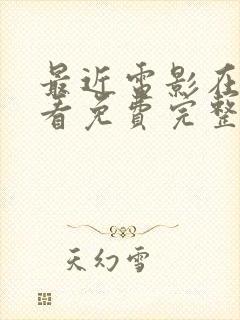 最近雷影在
看免费完整
天幻雪